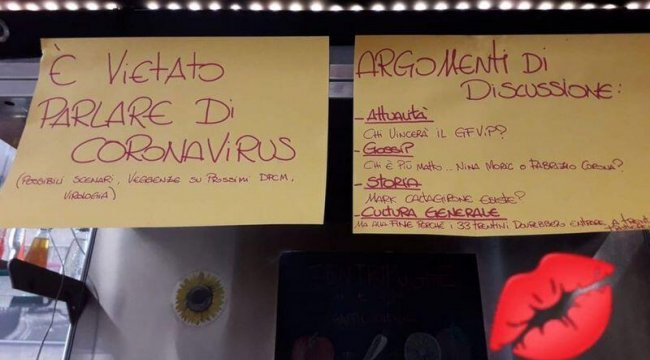 È VIETATO
PARLARE DI
CORONAVIRUS
(POSSIBILI SCENARI, VEGGENZE SU PROSSIMI DPCM,
VIROLOGIA)
ARGOMENTI DI
DISCUSSIONE:
- ATTUALITÀ
CHI VINCERÀ IL G.F.V.P?
- GOSSIP
CHI È PIÙ MATTO... NINA MORIC O FABRIZIO CORONA?
- STORIA
MARK CALTAGIRONE ESISTE?
- CULTURA GENERALE
MA ALLA FINE PERCHÈ I 33 TRENTINI DOVREBBERO ENTRARE A TRENTO
CENTRIFUGHE